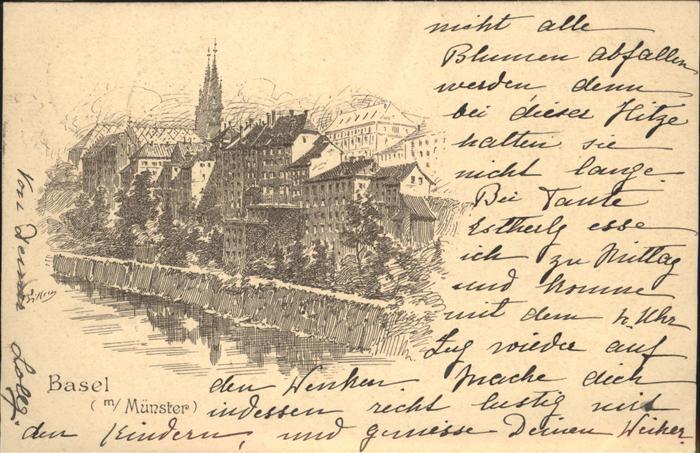 nicht alle
Blumen abfallen
werden, denn
bei dieser Hitze
halten sie
nicht lange.
Bei Tante
esse
ich zu Mittag
und komme
mit dem Uhr
Zug wieder auf
den Mache dich
indessen recht lustig mit
den Kindern, und geniesse Deinen
Von Deiner
Basel
(m/ Münster)